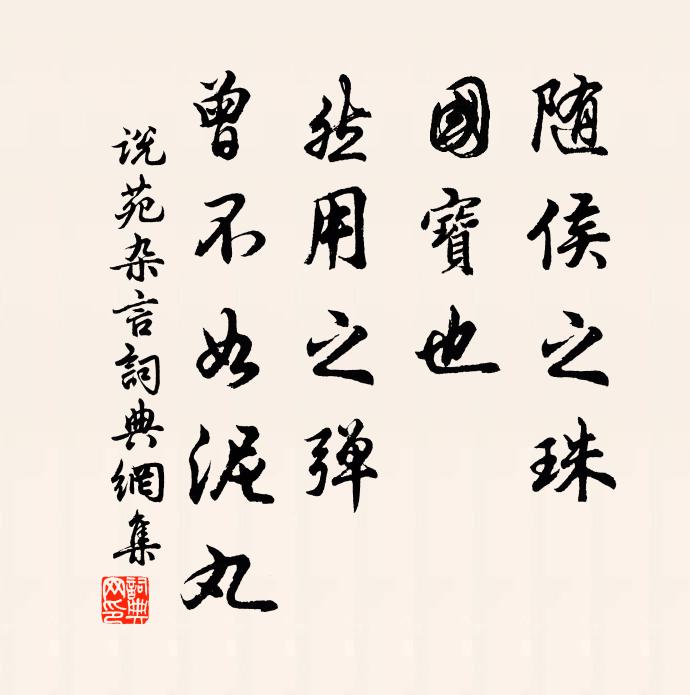 随侯之珠
國寶也
然用之弹
曾不如泥丸
说苑杂言詞典網集
詞典网印